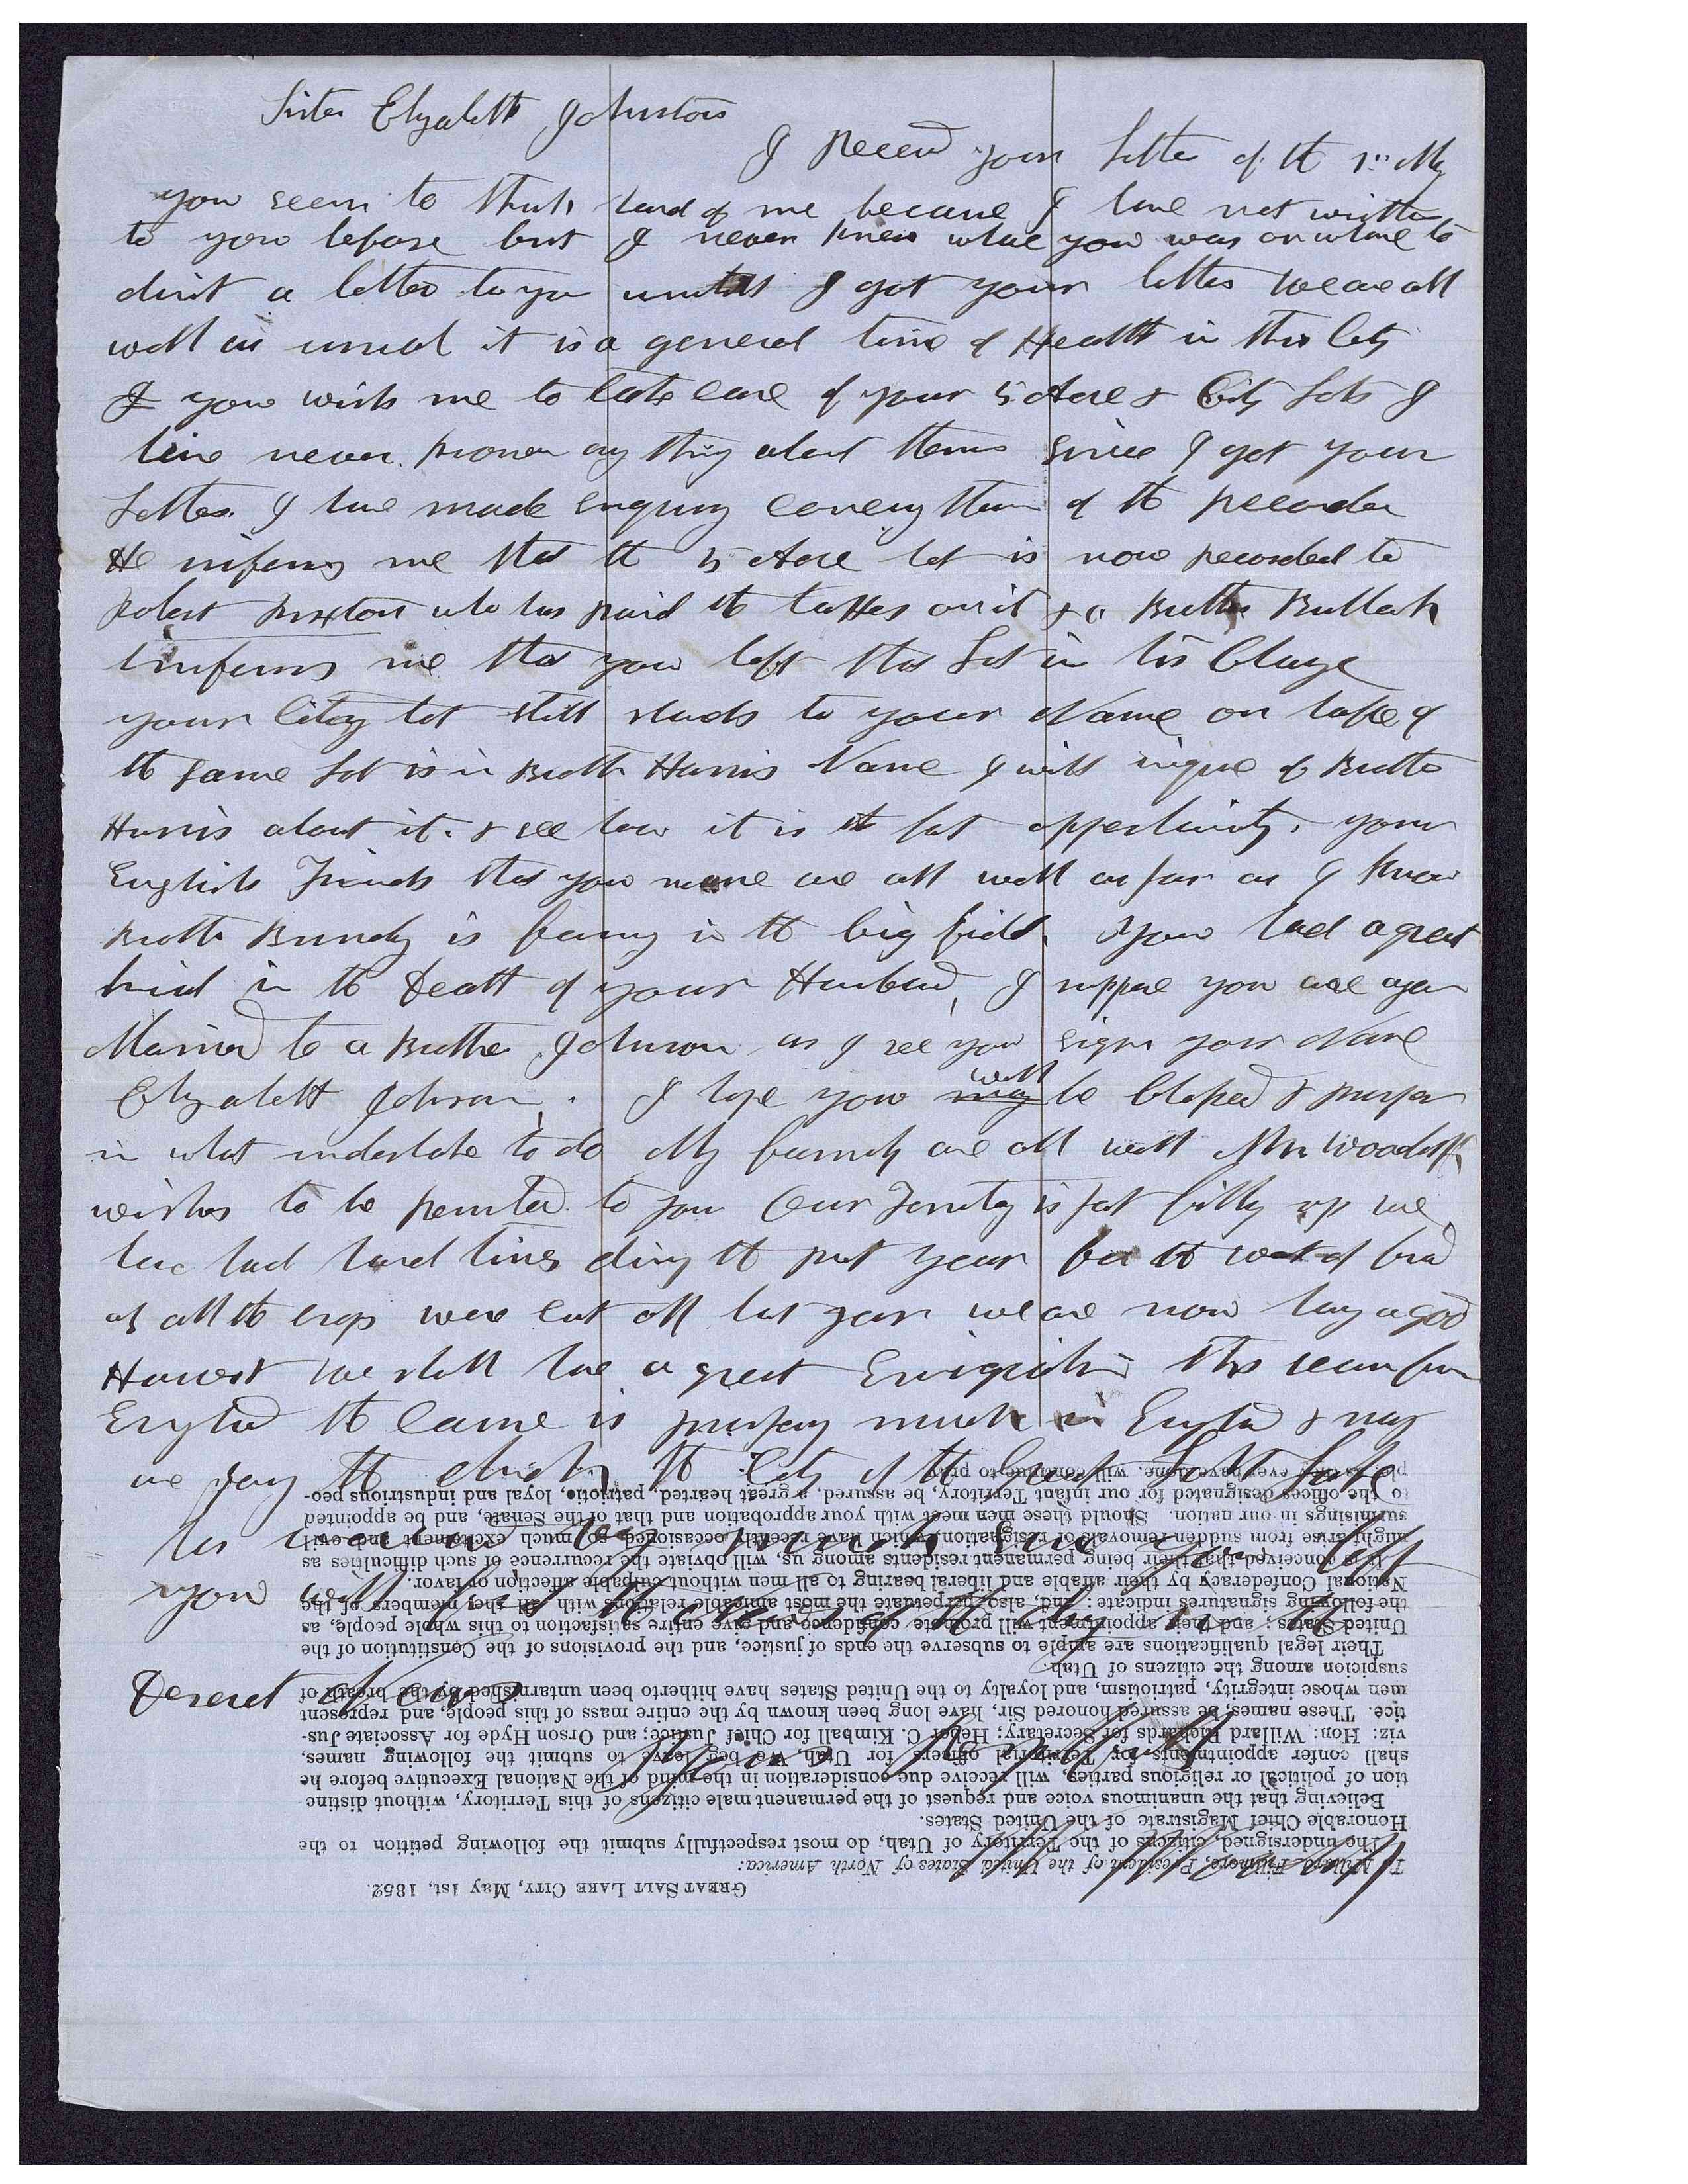 Sister Elizabeth Johnston
I Receivd your Letter of the 1st
you seem to think hard of me because I have not written
to you before but I never knew whare you was or whare to
direct a letter to you untill I got your letter we are all
well as usual it is a general time of Health in this City
you wish me to take care of your 5 Acre & City Lots I
have never known any thing about them since I got your
Letter I have made enquiry concerning them of the Recorder
He informs me that the 5 Acre lot is now recorded to
Robert who has paid the taxes on it & Brother Bullock
informs me that you left that Lot in his Charge
your City lot still stands to your Name one half of
the same Lot is in Brother Harris Name I will inquire of Brother
Harris about it. & see how it is the first opportunity. your
English Friends that you name are all well as far as I know
Brother Bundy is farming in the big field. you had a great
trial in the Death of your Husband, I suppose you are again
Married to a Brother Johnson as I see you sign your Name
Elizabeth Johnson. I hope you may will be blessed & prosper
in what undertake to do My family are all well Mrs Woodruff
wishes to be remembered to you Our Territory is fast filling up we
have had hard times during the past year for the want of bread
as all the crops were cut off last year we are now having a good
Harvest we shall have a great Emigration this season from
England the cause is prospering much in England & many
are Joining the church, the City of the Great Salt Lake
has very much since you left
you will find the news of the day in the
Deseret News
Yours Respectfully
GREAT SALT LAKE CITY, May 1st, 1852.
To Millard Fillmore, President of the United States of North America:
The undersigned, citizens of the Territory of Utah, do most respectfully submit the following petition to the
Honorable Chief Magistrate of the United States.
Believing that the unanimous voice and request of the permanent male citizens of this Territory, without distinc-
tion of political or religious parties, will receive due consideration in the mind of the National Executive before he
shall confer appointments for Territorial officers for Utah, We beg leave to submit the following names,
viz: Hon: Willard Richards for Secretary; Heber C. Kimball for Chief Justice; and Orson Hyde for Associate Jus-
tice. These names, be assured honored Sir, have long been known by the entire mass of this people, and represent
men whose integrity, patriotism, and loyalty to the United States have hitherto been untarnished by the breath of
suspicion among the citizens of Utah.
Their legal qualifications are ample to subserve the ends of justice, and the provisions of the Constitution of the
United States; and their appointment will promote confidence and give entire satisfaction to this whole people, as
the following signatures indicate: And, also, perpetuate the most amicable relations with all the members of the
National Confederacy by their affable and liberal bearing to all men without culpable affection or favor.
It is conceived that their being permanent residents among us, will obviate the recurrence of such difficulties as
might arise from sudden removals or resignations, which have recently occasioned so much excitement and evil
surmisings in our nation. Should these men meet with your approbation and that of the Senate, and be appointed
to the offices designated for our infant Territory, be assured, a great hearted, patriotic, loyal and industrious peo-
ple, as they ever have done, will continue to pray.